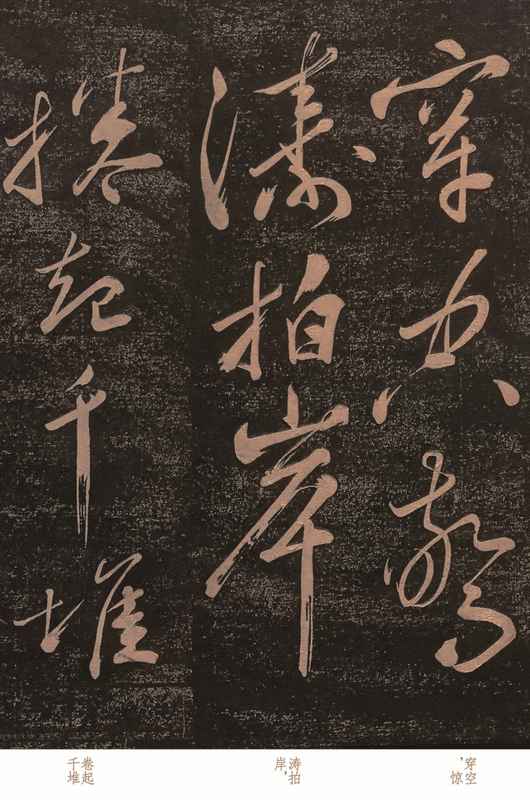 穿空驚
濤拍岸
捲起千堆
穿空，惊
涛拍岸，
卷起千堆